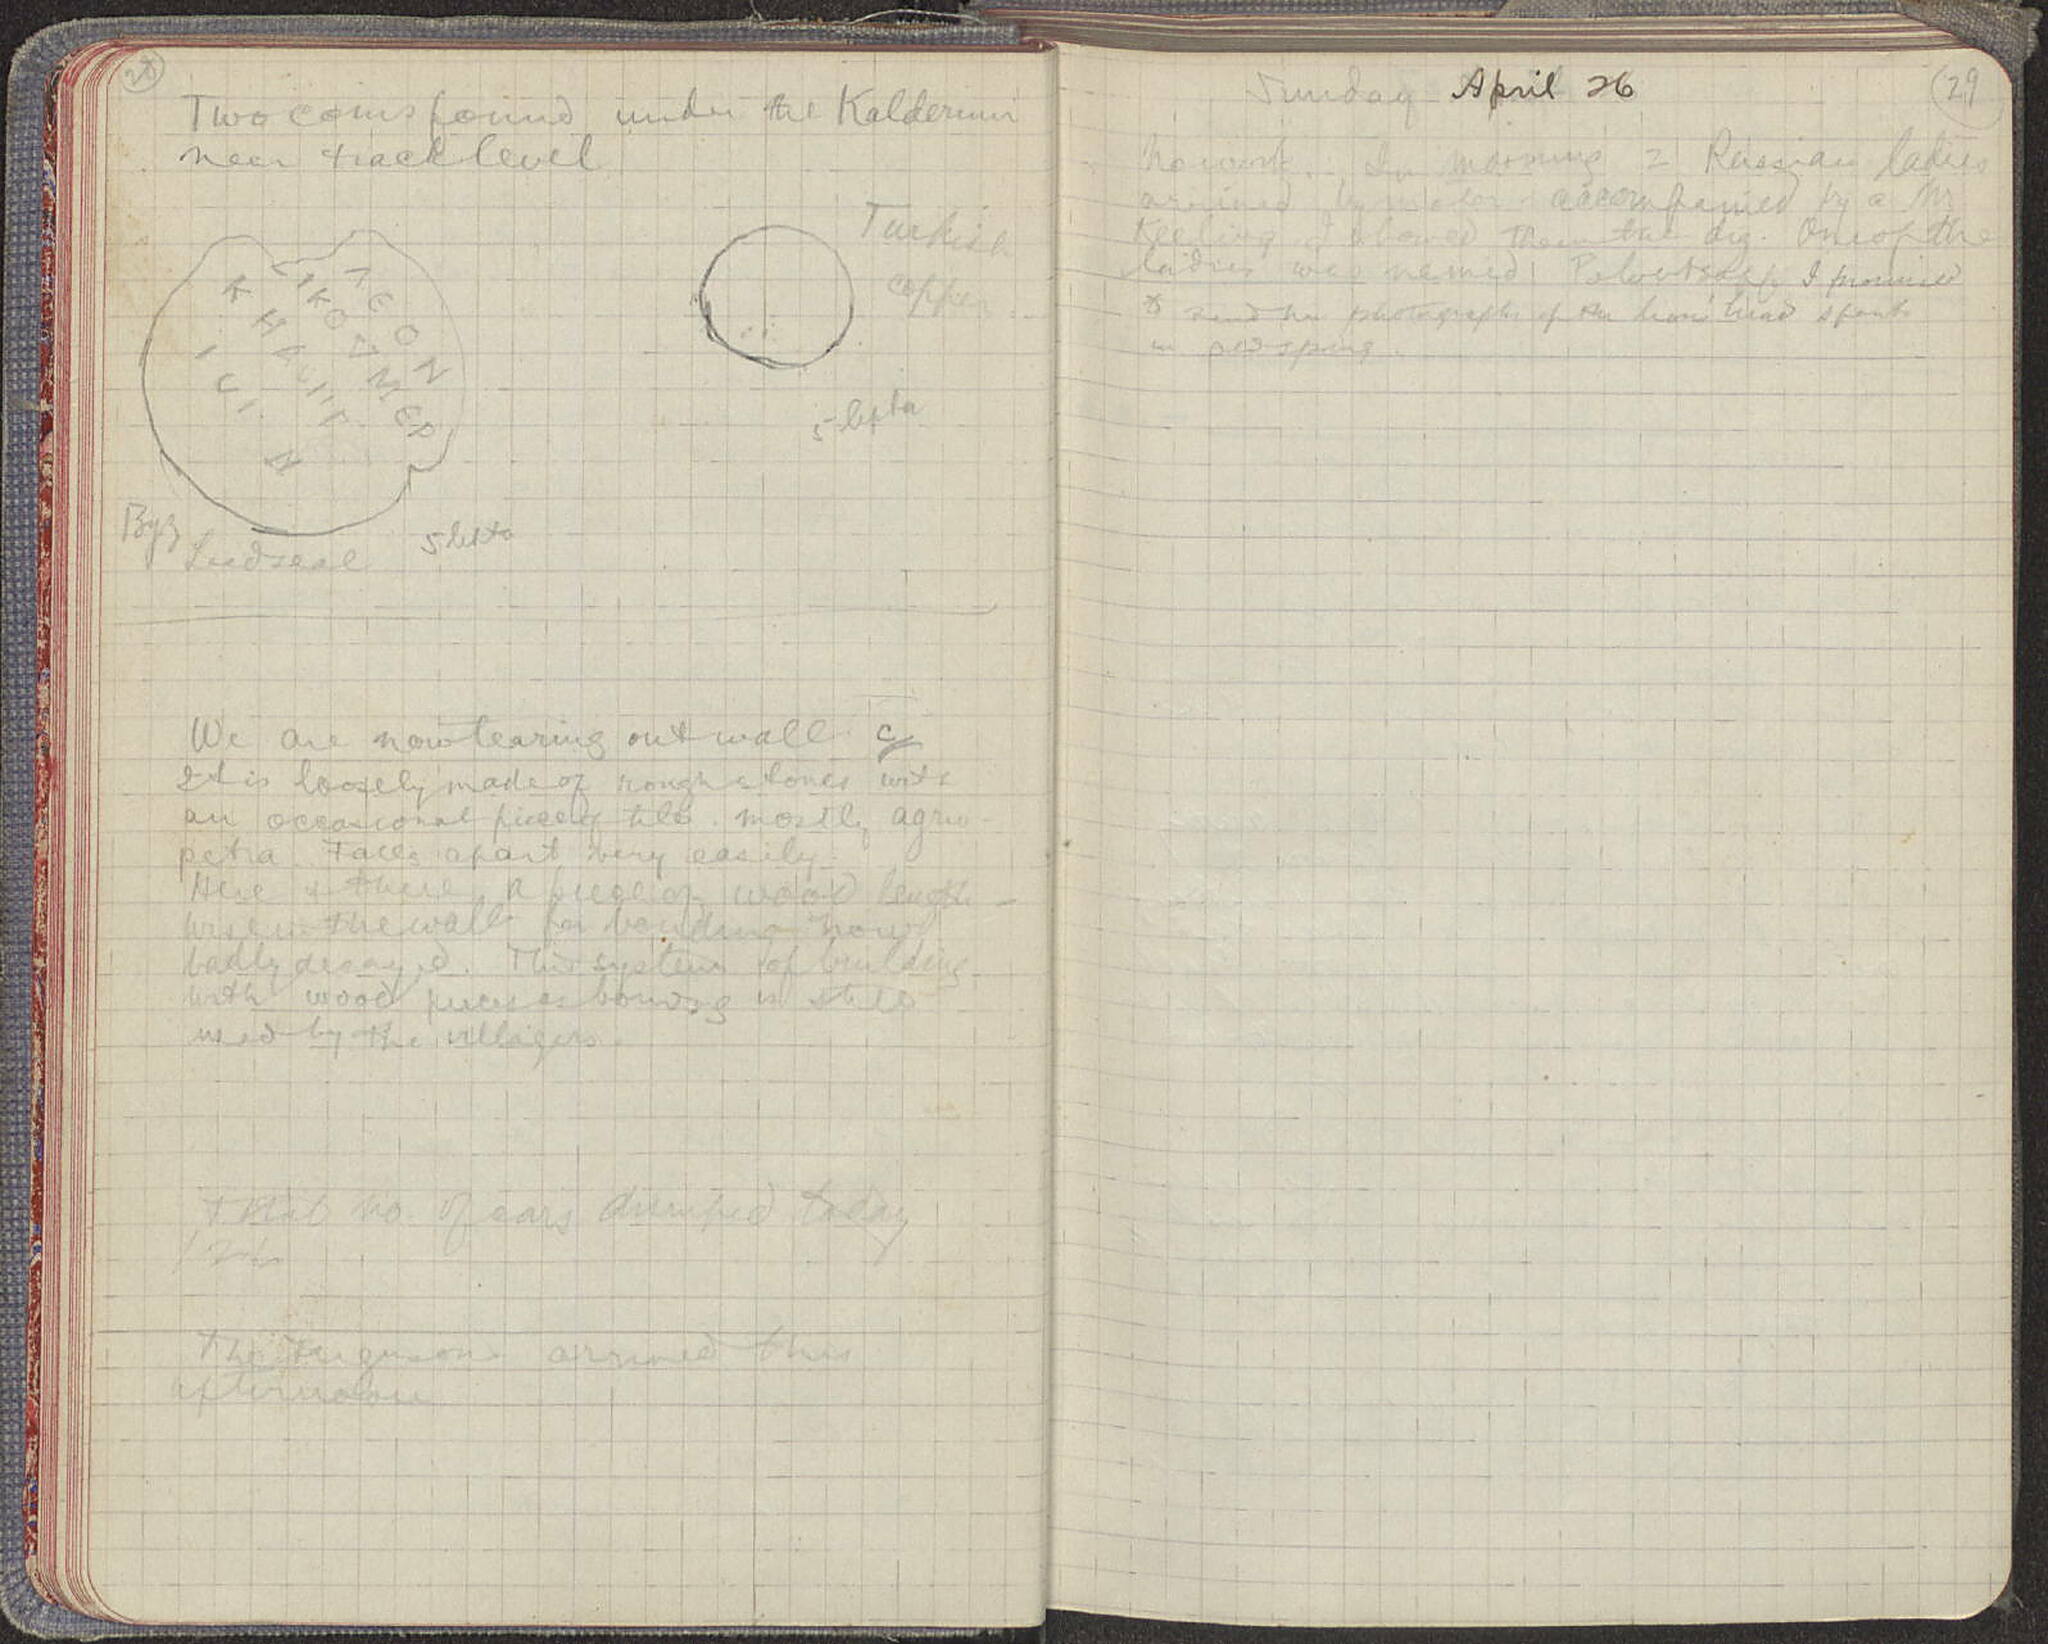 28
Two coins found under the Kalderimi
near track level
Turkish
copper
ΛΕΟΝ
ΙΚΟΔΜΕΡ
5 lepta
Byz
Leadseal 5 lepta
We are now tearing out wall c
It is loosely made of rough stones with
an occasional piece of tile. mostly agrio-
petra. Falls apart very easily.
Here & there a piece of wood length-
wise in the wall for bonding now
badly decayed. This system of building
with wood pieces as bonding is still
used by the villagers.
total no. of cars dumped today
The Fergusons arrived this
afternoon
Sunday April 26
29
No work. In morning 2 Russian ladies
arrived by motor accompanied by a Mr
Keeling. I showed them the dig. One of the
ladies was named I promised
to send her photographs of the lion head spouts
in old spring.